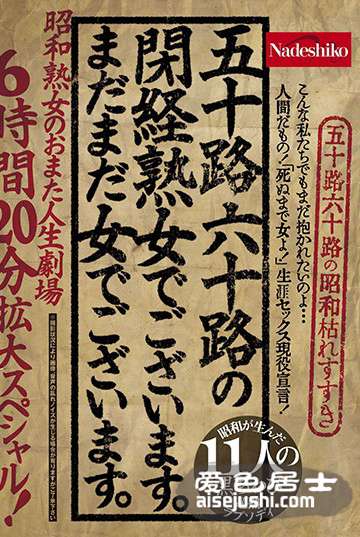 Nadeshiko
五十路六十路の昭和枯れすすき
こんな私たちでもまだ抱かれたいのよ…
人間だもの!「死ぬまで女よ!」生涯セックス現役宣言!
五十路六十路の
閉経熟女でございます。
まだまだ女でございます。
昭和熟女のおまた人生劇場
6時間20分拡大スペシャル!
昭和が生んだ
11人の
爱色居士
aisejushi.com